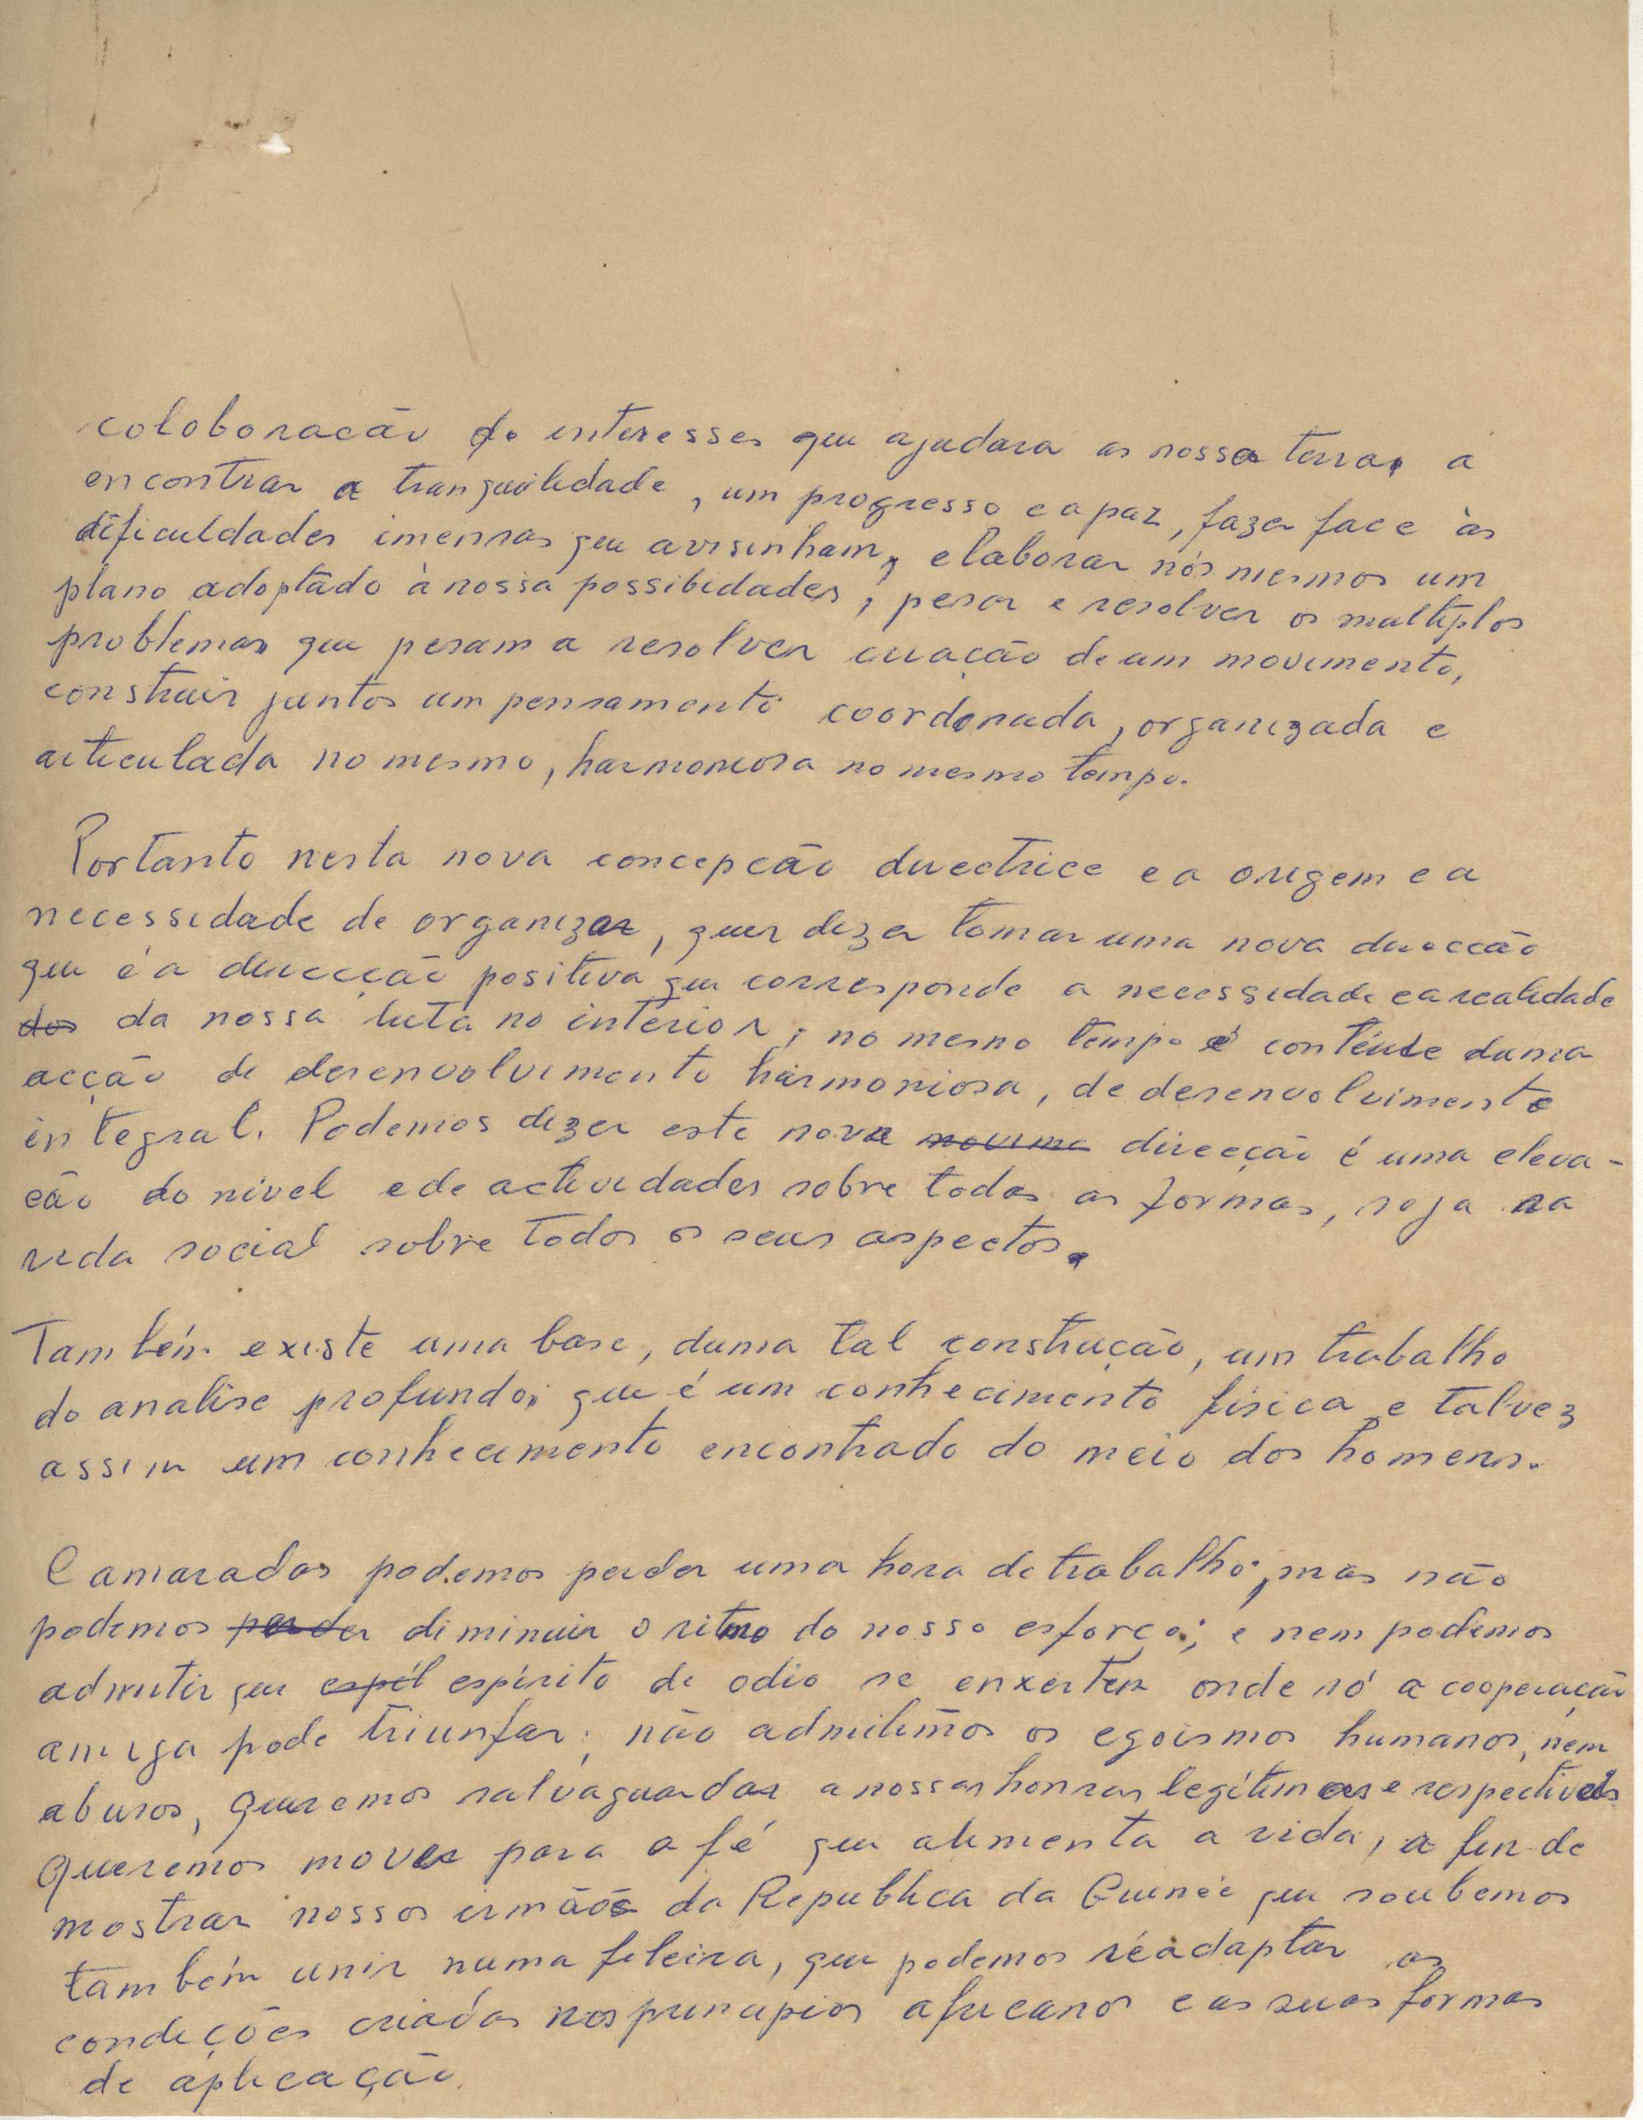 coloboracão de interesses que ajudara as nossa terra, a
encontrar a tranquilidade, um progresso capaz, fazer face às
dificuldades imensas que avisinham, elaborar nós mesmos um
plano adoptado à nossa possibidades, pesar e resolver os multiplos
problemas que pesam a resolver criação de um movimento,
construir juntos um pensamento coordenada, organizada e
articulada no mesmo, harmoniosa no mesmo tempo.
Portanto nesta nova concepcão directrice e a origem e a
necessidade de organizar, quer dizer tomar uma nova direccão
que é a direcção positiva que corresponde a necessidade e a realidade
dos da nossa luta no interior, no mesmo tempo é contéude duma
acção de desenvolvimento harmoniosa, de desenvolvimento
integral. Podemos dizer esta nova movime direcção é uma eleva-
cão do nivel e de actividades sobre todas as formas, seja na
vida social sobre todos os seus aspectos.
Também existe uma base, duma tal construção, um trabalho
do analise profundo, que é um conhecimento fisica e talvez
assim um conhecimento encontrado do meio dos homens.
Camaradas podemos perder uma hora de trabalho, mas não
podemos perder diminuir o ritmo do nosso esforço; e nem podemos
admitir que espél espírito de odio se enxerten onde só a cooperação
amiga pode triunfar; não admitimos os egoismos humanos, nem
abusos, queremos salvaguardar a nossas honras legítimas e respectiveis
queremos mover para a fé que alimenta a vida, a fin de
mostrar nossos irmãos da Republica da Guinée que soubemos
também unir numa fileira, que podemos réadaptar as
condições criadas nos principios africanos e as suas formas
de aplicação.